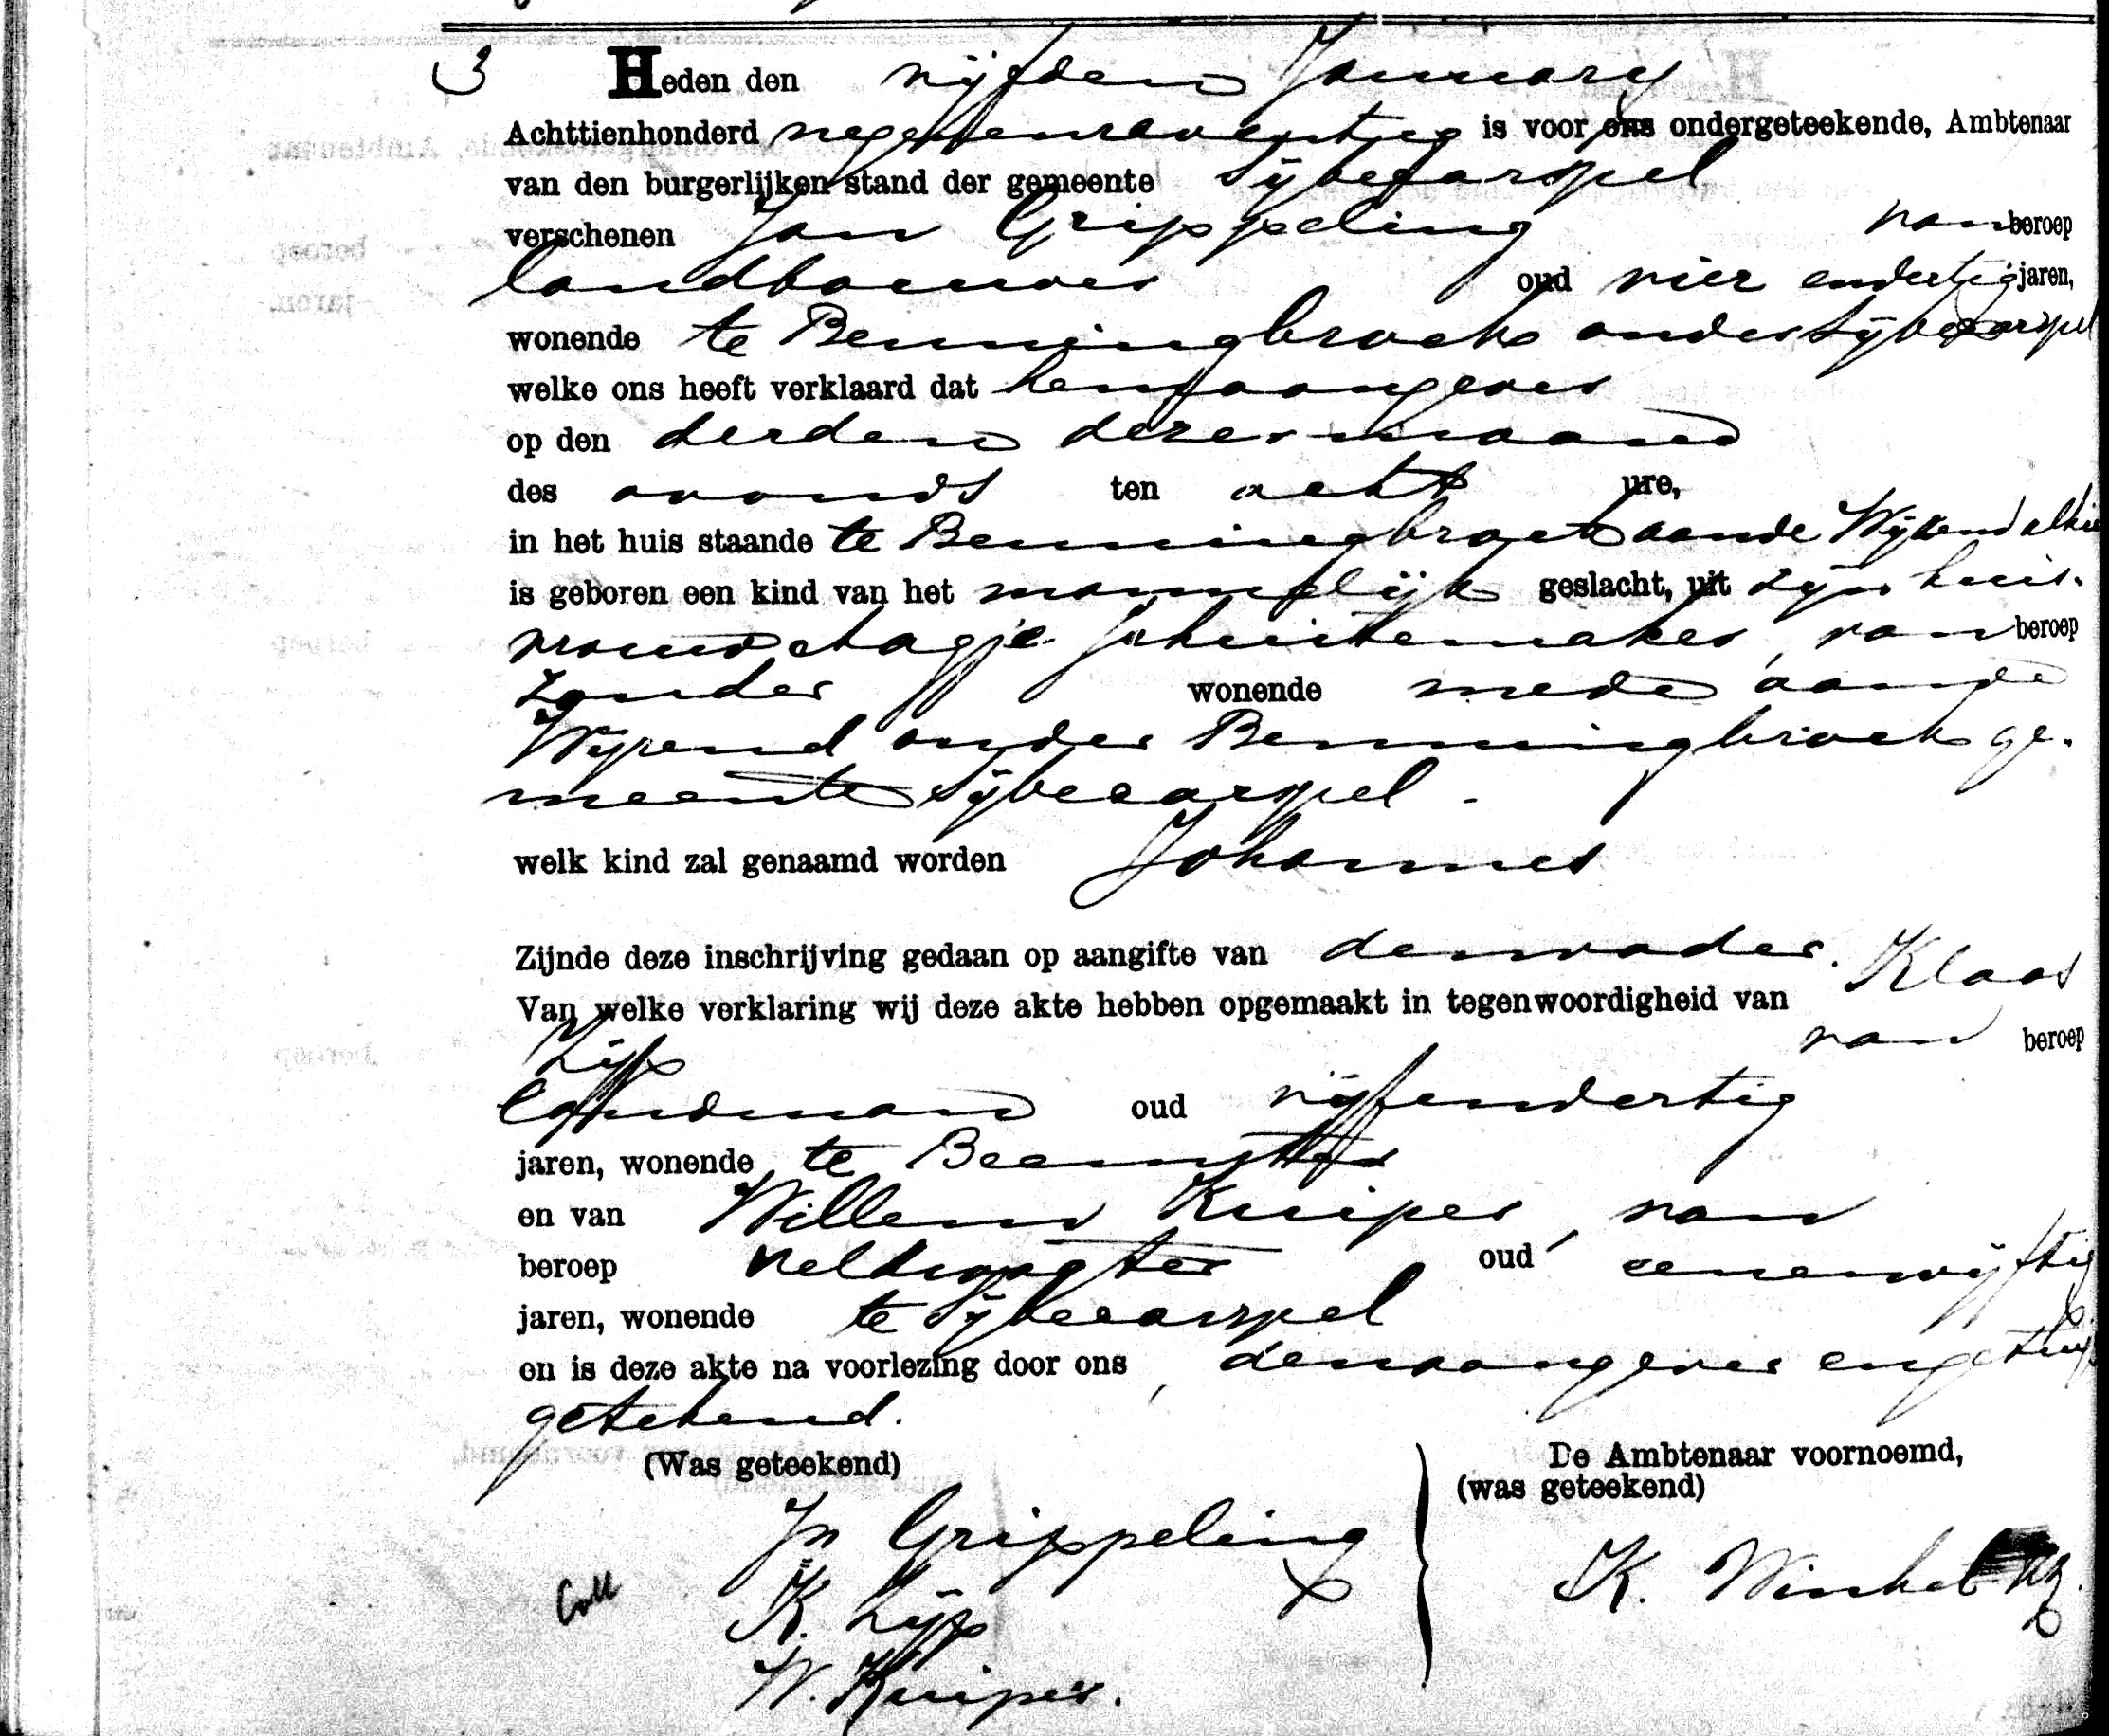 3 Heden den vijfden January
Achttienhonderd negenennegentig is voor ons ondergeteekende, Ambtenaar
van den burgerlijken stand der gemeente Sijbecarspel
verschenen Jan Grippeling van beroep
landbouwer oud vier endertig jaren,
wonende te Benningbroek onder Sijbecarspel
welke ons heeft verklaard dat hem aangever
op den derden dezer maand
des avonds ten acht ure,
in het huis staande te Benningbroek aande Wijzend alhier
is geboren een kind van het mannelijk geslacht, uit zijn huis-
vrouw Aagje Schuitemaker, van beroep
zonder wonende mede aande
Wijzend onder Benningbroek ge-
meente Sijbecarspel.
welk kind zal genaamd worden Johannes
Zijnde deze inschrijving gedaan op aangifte van den vader.
Van welke verklaring wij deze akte hebben opgemaakt in tegenwoordigheid van Klaas
Zijp van beroep
landman oud vijfendertig
jaren, wonende te
en van Willem Kuiper, van
beroep veldwagter oud eenenvijftig
jaren, wonende te Sijbecarspel
en is deze akte na voorlezing door ons, den aangever en getuigen
getekend.
(Was geteekend) De Ambtenaar voornoemd,
(was geteekend)
Jn Grippeling
K. Winkel
Coll K. Zijp
W. Kuiper.